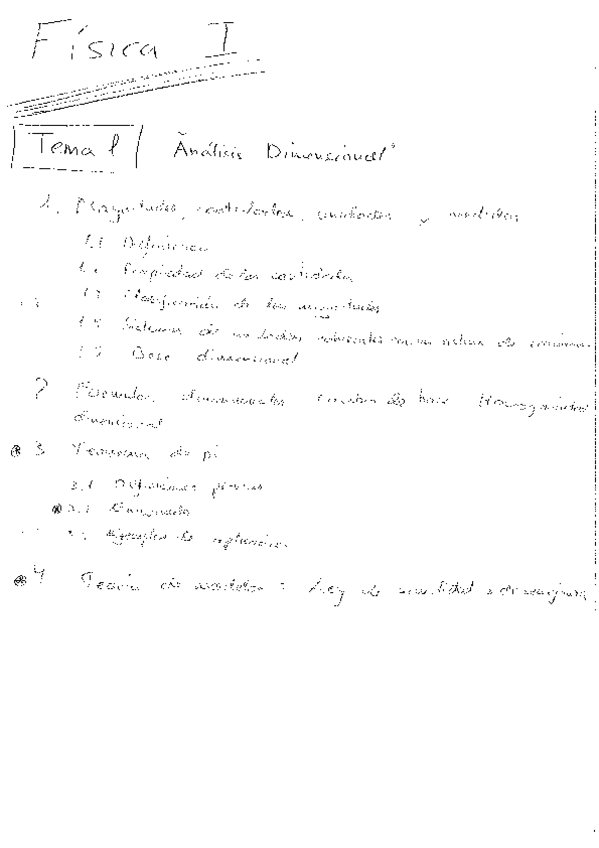 Física I
Tema 1 Análisis Dimensional
1. Magnitudes, cantidades, unidades y medidas
1.1 Definición
1.2 Propiedad de las cantidades
1.3 Clasificación de las magnitudes
1.4 Sistema de unidades
1.5 Base dimensional
2 dimensionales cambio de base Homogeneidad
dimensional
3 Teorema de pi
3.1 Definiciones previas
3.2 Enunciado
3.3 Ejemplos de aplicación
4 Teoría de modelos : Ley de similitud o semejanza